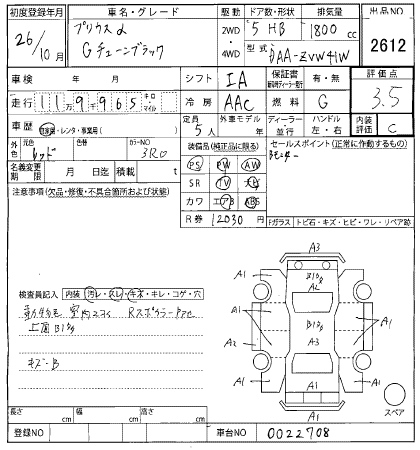 初度登録年月 車名・グレード 駆動 ドア数・形状 排気量 出品NO
26/10月 プリウスα Gチューンブラック 2WD・4WD 5 HB 1800 cc 2612
型式 DAA-ZVW41W
車検 年 月 シフト IA 保証書 有・無 評価点
走行 119965 キロ マイル 冷房 AAC 燃料 G 3.5
車歴 自家用・レンタ・事業用( ) 定員 5人 外車モデル 年 ディーラー 並行 ハンドル 左・右 内装評価 C
外色 元色 レッド 色替 カラーNO 3R0 装備品(純正品に限る) セールスポイント(正常に作動するもの)
名義変更期限 月 日迄 積載 t PS PW
注意事項(欠品・修復・不具合箇所および状態) SR TV ナビ
カワ エアB ABS
R券 12030 円 Fガラス トビ石・キズ・ヒビ・ワレ・リペア跡
A3
A1 B1 A2 A1
検査員記入 内装 汚レ・スレ・キズ・キレ・コゲ・穴
室内 Rスポイラー
上面
A1 B1 A1
A2 A3 A1
キズ・B
A1 A1 A1
A1 スペア
長さ cm 幅 cm 高さ cm
登録NO 車台NO 0022708